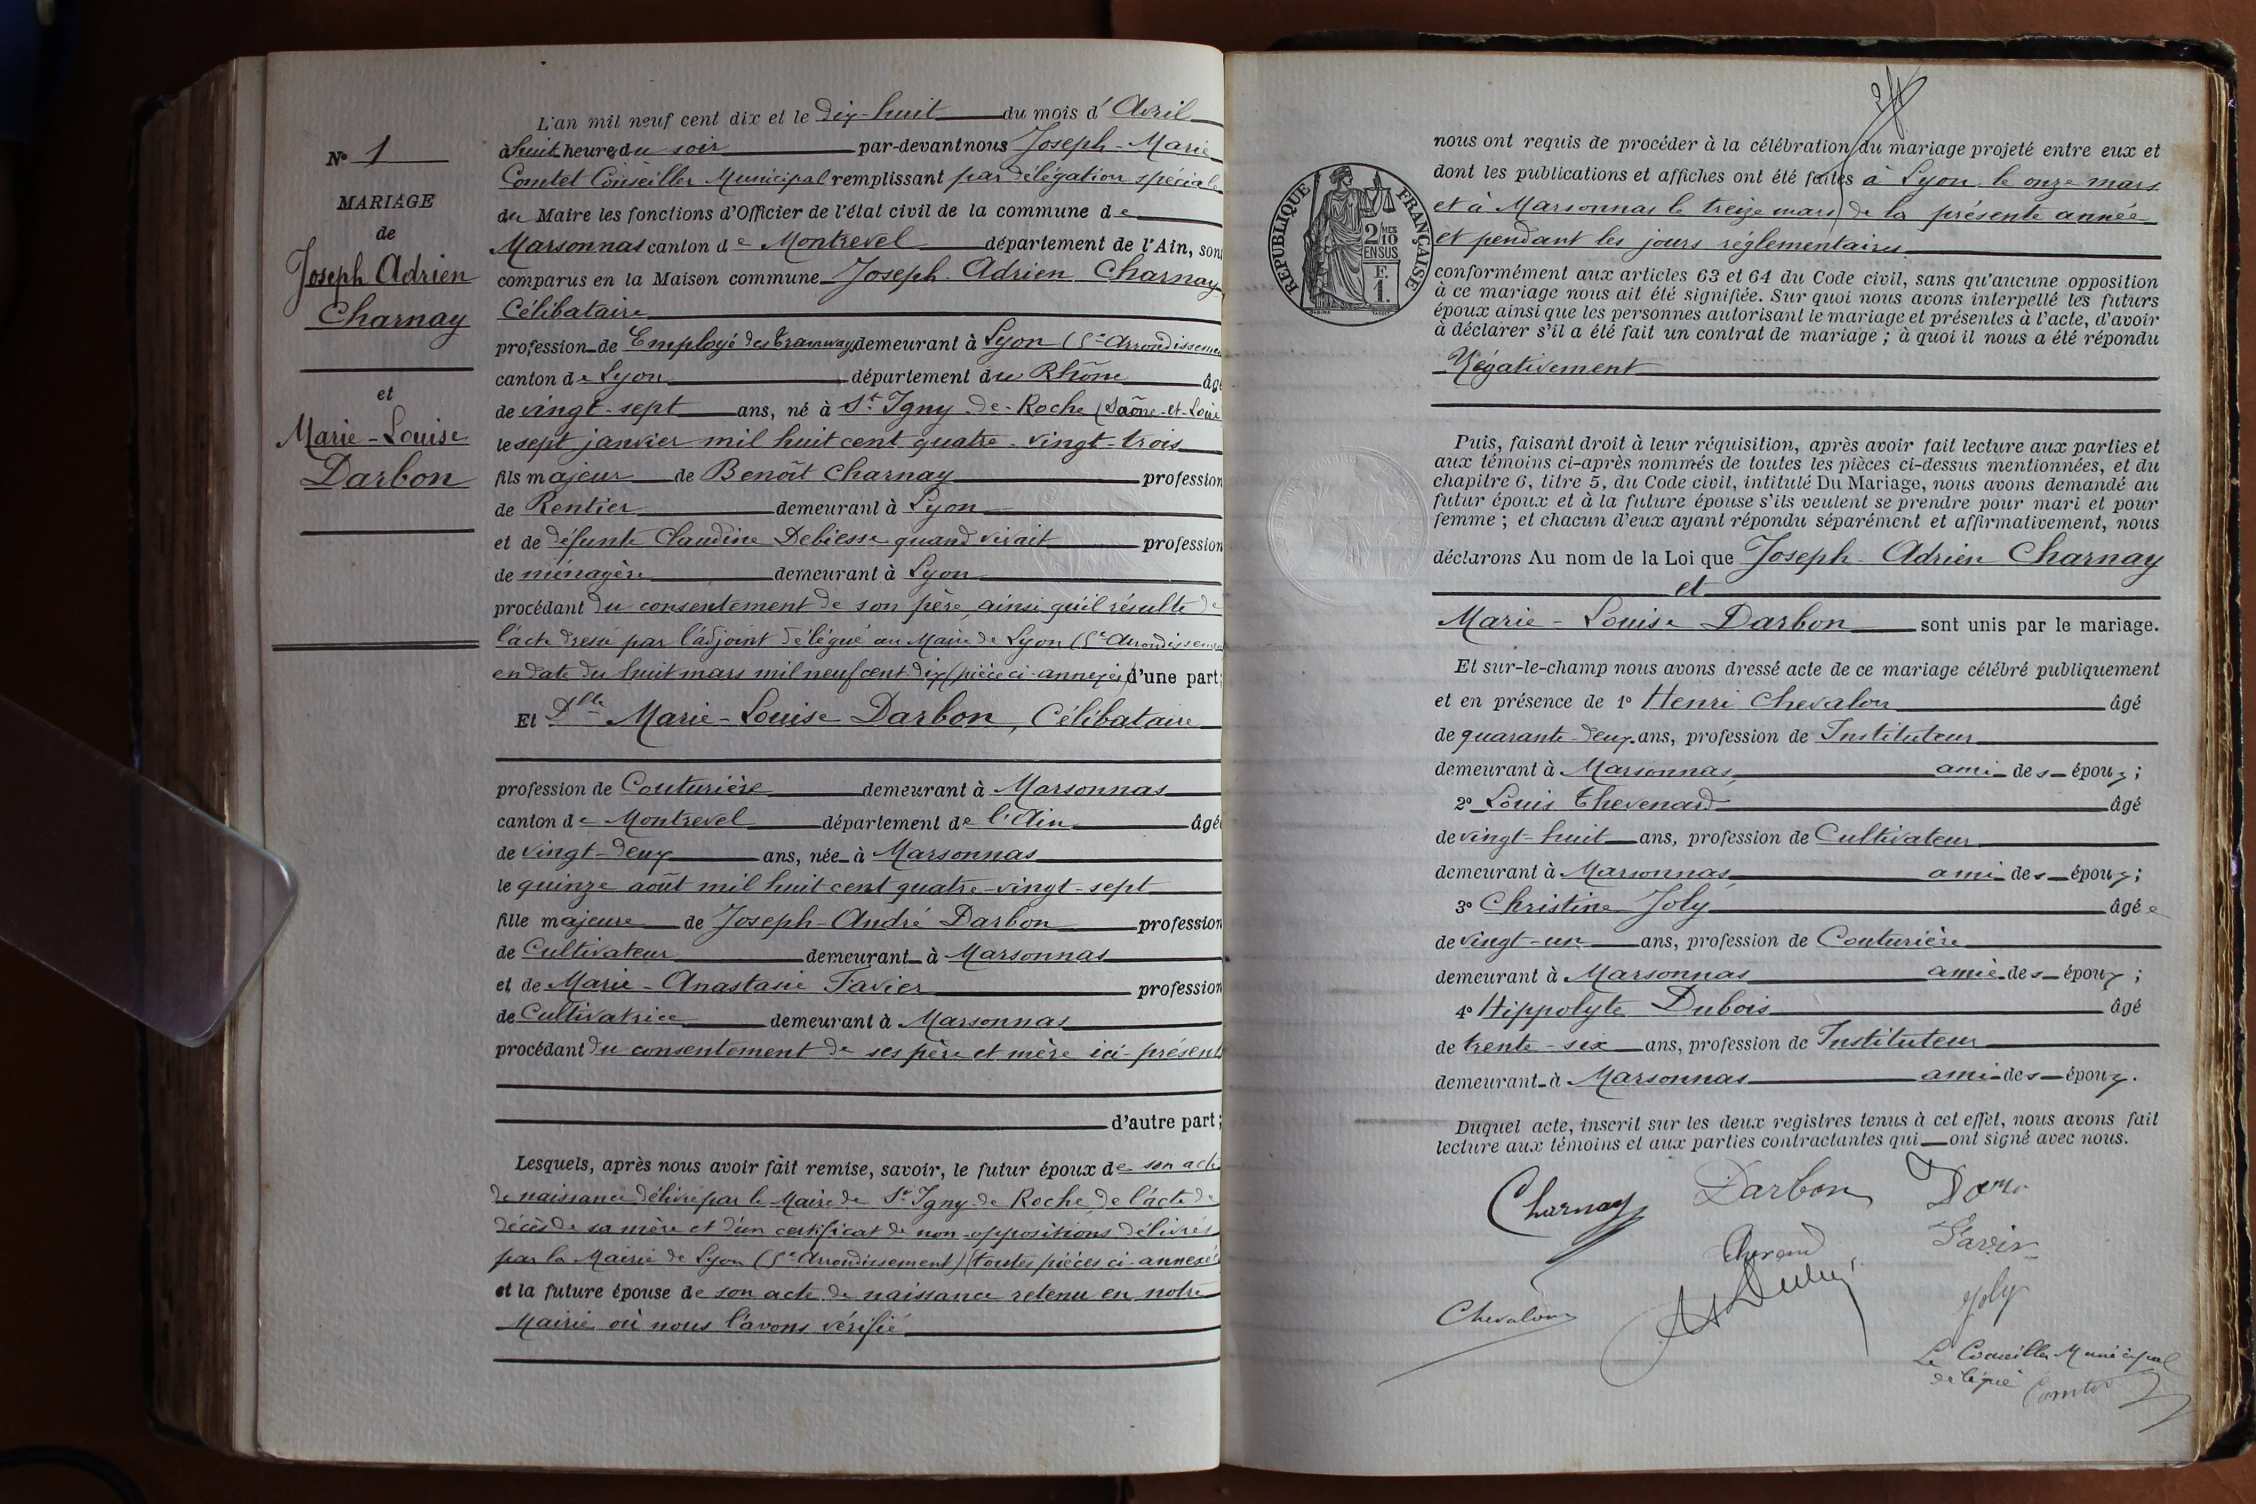 L'an mil neuf cent dix et le dix-huit du mois d'Avril
N° 1
à huit heures du soir par-devant nous Joseph-Marie
Comtet Conseiller Municipal remplissant par délégation spéciale
MARIAGE
du Maire les fonctions d'Officier de l'état civil de la commune de
de
Marsonnas canton de Montrevel département de l'Ain, sont
Joseph Adrien
comparus en la Maison commune Joseph Adrien Charnay
Charnay
Célibataire
profession de Employé des tramways demeurant à Lyon (5e Arrondissement
canton de Lyon département du Rhône âgé
et
de vingt-sept ans, né à St Igny-de-Roche (Saône-et-Loire
Marie-Louise
le sept janvier mil huit cent quatre-vingt-trois
Darbon
fils majeur de Benoît Charnay profession
de Rentier demeurant à Lyon
et de défunte Claudine Debiesse quand vivait profession
de ménagère demeurant à Lyon
procédant du consentement de son père, ainsi qu'il résulte de
l'acte dressé par l'adjoint délégué au Maire de Lyon (5e Arrondissement
en date du huit mars mil neuf cent dix (pièce ci-annexée) d'une part;
Et Dlle Marie-Louise Darbon, Célibataire
profession de Couturière demeurant à Marsonnas
canton de Montrevel département de l'Ain âgée
de vingt-deux ans, née à Marsonnas
le quinze août mil huit cent quatre-vingt-sept
fille majeure de Joseph-André Darbon profession
de Cultivateur demeurant à Marsonnas
et de Marie-Anastasie Favier profession
de Cultivatrice demeurant à Marsonnas
procédant du consentement de ses père et mère ici-présents
d'autre part;
Lesquels, après nous avoir fait remise, savoir, le futur époux de son acte
de naissance délivré par le Maire de St Igny-de-Roche, de l'acte de
décès de sa mère et d'un certificat de non-oppositions délivrés
par la Mairie de Lyon (5e Arrondissement) (toutes pièces ci-annexées
et la future épouse de son acte de naissance retenu en notre
Mairie où nous l'avons vérifié
nous ont requis de procéder à la célébration du mariage projeté entre eux et
dont les publications et affiches ont été faites à Lyon le onze mars
et à Marsonnas le treize mars de la présente année
et pendant les jours réglementaires
REPUBLIQUE FRANÇAISE
2/10 MES EN SUS
F. 1.
conformément aux articles 63 et 64 du Code civil, sans qu'aucune opposition
à ce mariage nous ait été signifiée. Sur quoi nous avons interpellé les futurs
époux ainsi que les personnes autorisant le mariage et présentes à l'acte, d'avoir
à déclarer s'il a été fait un contrat de mariage ; à quoi il nous a été répondu
Négativement
Puis, faisant droit à leur réquisition, après avoir fait lecture aux parties et
aux témoins ci-après nommés de toutes les pièces ci-dessus mentionnées, et du
chapitre 6, titre 5, du Code civil, intitulé Du Mariage, nous avons demandé au
futur époux et à la future épouse s'ils veulent se prendre pour mari et pour
femme ; et chacun d'eux ayant répondu séparément et affirmativement, nous
déclarons Au nom de la Loi que Joseph-Adrien Charnay
et
Marie-Louise Darbon sont unis par le mariage.
Et sur-le-champ nous avons dressé acte de ce mariage célébré publiquement
et en présence de 1° Henri Chevalon âgé
de quarante-deux ans, profession de Instituteur
demeurant à Marsonnas, ami des époux ;
2° Louis Thevenard âgé
de vingt-huit ans, profession de Cultivateur
demeurant à Marsonnas, ami des époux ;
3° Christine Joly âgée
de vingt-un ans, profession de Couturière
demeurant à Marsonnas amie des époux ;
4° Hippolyte Dubois âgé
de trente-six ans, profession de Instituteur
demeurant à Marsonnas ami des époux.
Duquel acte, inscrit sur les deux registres tenus à cet effet, nous avons fait
lecture aux témoins et aux parties contractantes qui ont signé avec nous.
Charnay Darbon
Chevalon
Joly
Le Conseiller Municipal
délégué Comtet